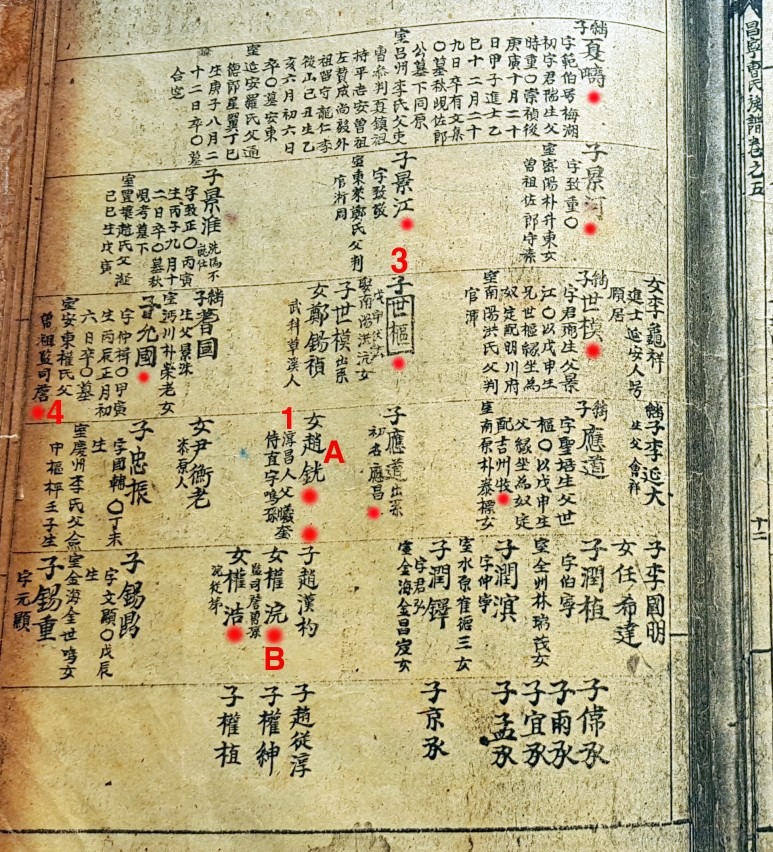 昌寧曹氏族譜卷之五
十二
子夏疇
字範伯号梅湖
初字君瑞生父
時重○崇禎後
庚寅十月二十
日甲子進士乙
巳十二月二十
九日卒有文集
○墓秋峴佐郎
公墓下同原
室呂州李氏父吏
曹參判夏鎮祖
持平志安曾祖
左贊成尚毅外
祖留守龍仁李
後山己丑生乙
亥六月初六日
卒○墓安東
室延安羅氏父通
德郎星翼丁巳
生庚子八月二
十二日卒○墓
合窆
子景河
字致重○
室密陽朴升東女
曾祖佐郎守
子景江
字致敬
室東萊鄭氏父判
官沂周
子景淮
字致正○丙寅
生丙子九月十
二日卒○墓秋
峴考墓下
室豐壤趙氏父
己巳生戊寅
女李龜祥
進士延安人号
顧居
子世模
字君瑞生父景
江○以戊申生
兄世樞緣坐為
奴定配明川府
室南陽洪氏父判
官渾
3
子世樞
娶南陽洪沆女
子世模出系
女鄭錫禎
武科草溪人
子普國
生父景洙
室沔川朴榮老女
子允國
字仲揖○甲寅
生丙辰正月初
六日卒○墓
室安東權氏父
曾祖監司詹
4
子李延大
生父會祥
子應道
字聖培生父世
樞○以戊申生
父緣坐為奴定
配吉州牧
室南原朴泰標女
子應道出系
初名應昌
1
A
女趙銧
淳昌人父巘奎
侍直字鳴孫
女尹衡老
漆原人
子忠振
字國輔○丁未
生
室慶州李氏父僉
中樞枰壬子生
子李國明
女任希達
子潤植
字伯寧
室全州林瑞茂女
子潤濱
字仲寧
室水原崔德三女
子潤鐸
字君弘
室金海金昌宬女
子趙漢杓
女權浣
監司詹曾孫
B
女權浩
浣從弟
子錫昺
字文顯○戊辰
生
室金海全世鳴女
子錫重
字元顯
子儒承
子雨承
子宜承
子孟承
子京承
子趙從淳
子權紳
子權植